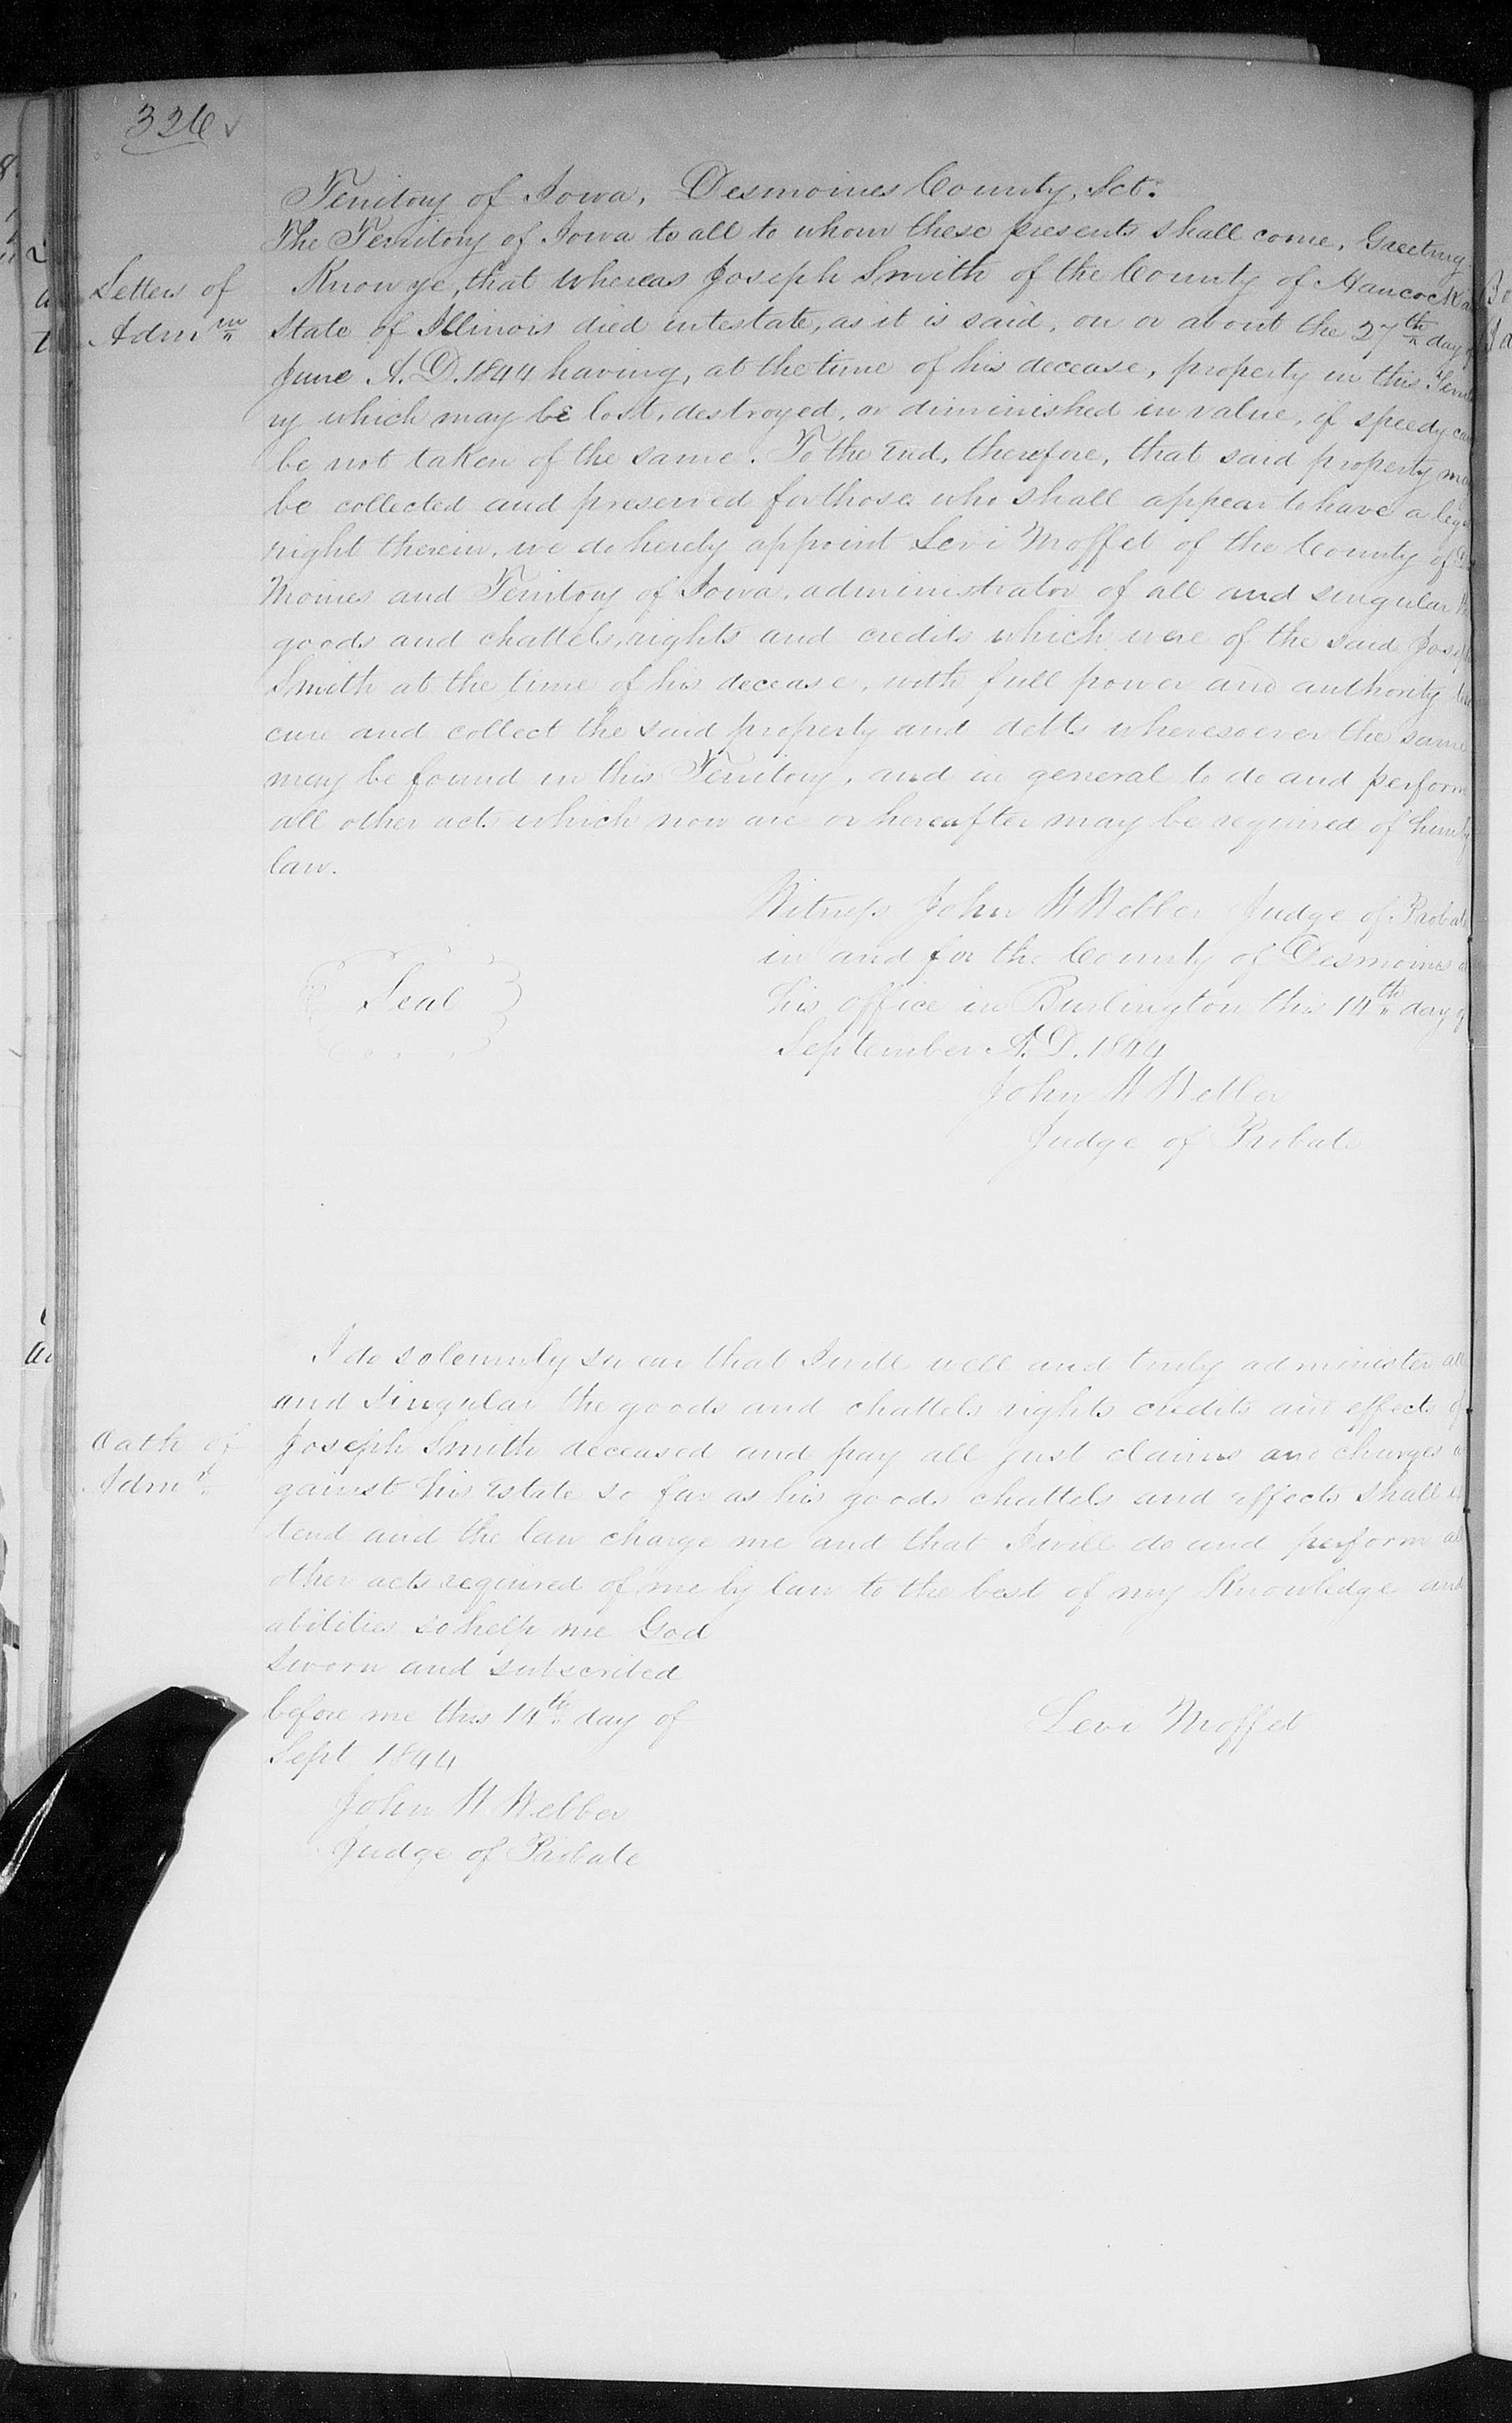 326
Territory of Iowa, Desmoines County, Sct.
The Territory of Iowa to all to whom these presents shall come, Greeting.
Letters of
Admn
Know ye, that whereas Joseph Smith of the County of Hancock
State of Illinois died intestate, as it is said, on or about the 27th day of
June A.D. 1844 having, at the time of his decease, property in this Territo
ry which may be lost, destroyed, or diminished in value, if speedy care
be not taken of the same. To the End, therefore, that said property may
be collected and preserved for those who shall appear to have a legal
right therein, we do hereby appoint Levi Moffet of the County of Des
Moines and Territory of Iowa, administrator of all and singular the
goods and chattels, rights and credits which were of the said Joseph
Smith at the time of his decease, with full power and authority to se
cure and collect the said property and debts wheresoever the same
may be found in this Territory, and in general to do and perform
all other acts which now are or hereafter may be required of him by
law.
Witness John W Webber Judge of Probate
in and for the County of Desmoines at
his office in Burlington this 14th day of
September A.D. 1844
Seal
John W Webber
Judge of Probate
Oath of
Admr
I do solemnly swear that I will well and truly administer all
and singular the goods and chattels rights credits and effects of
Joseph Smith deceased and pay all just claims and charges a
gainst his Estate so far as his goods chattels and effects shall ex
tend and the law charge me and that I will do and perform all
other acts required of me by law to the best of my Knowledge and
abilities so help me God
Sworn and subscribed
before me this 14th day of
Sept 1844
Levi Moffet
John W Webber
Judge of Probate